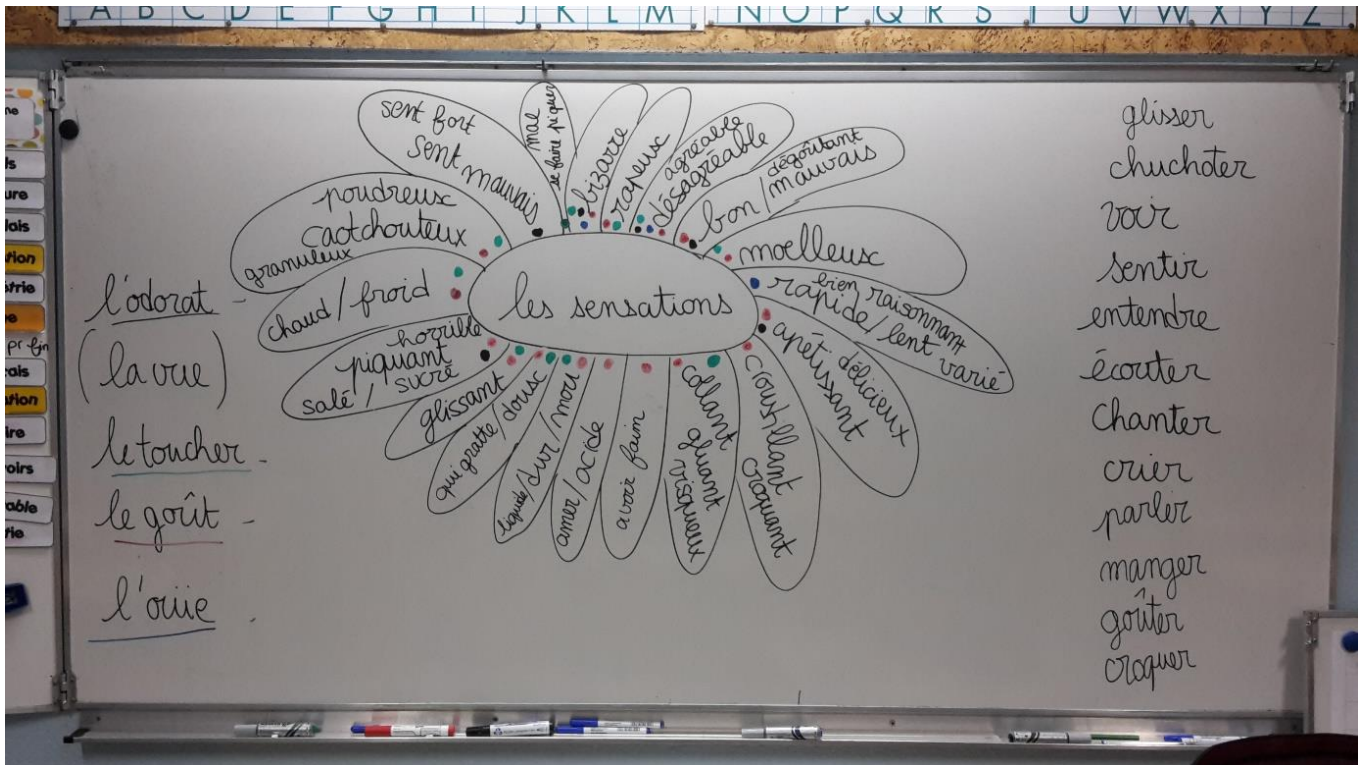 A B C D E F G H I J K L M N O P Q R S T U V W X Y Z
l'odorat -
(la vue)
le toucher -
le goût -
l'ouïe -
les sensations
sent fort
sent mauvais
mal
se faire piquer
bizarre
rapeux
agréable
désagréable
bon / dégoûtant
mauvais
moelleux
bien raisonnant
rapide / lent varié
apétissant délicieux
croustillant
croquant
collant
gluant
visqueux
avoir faim
amer / acide
liquide / dur / mou
qui gratte / doux
glissant
horrible
piquant
salé / sucré
chaud / froid
poudreux
caotchouteux
granuleux
glisser
chuchoter
voir
sentir
entendre
écouter
chanter
crier
parler
manger
goûter
croquer